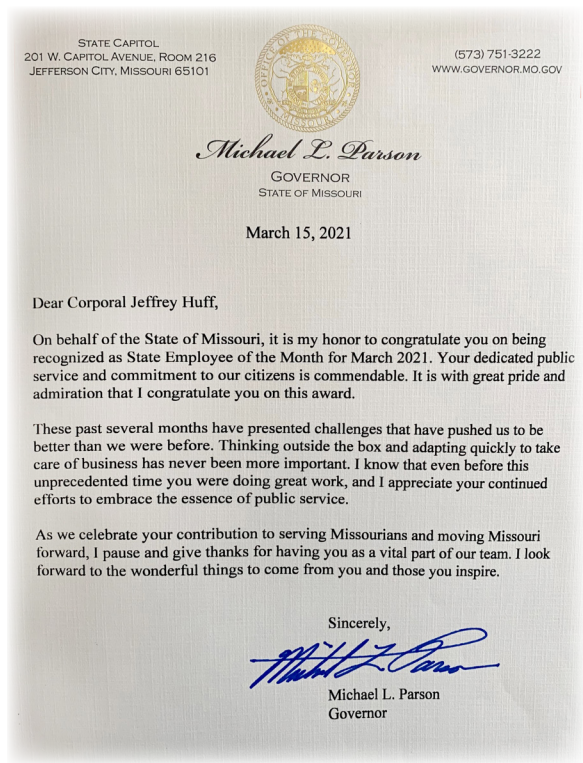 STATE CAPITOL
201 W. CAPITOL AVENUE, ROOM 216
JEFFERSON CITY, MISSOURI 65101
(573) 751-3222
WWW.GOVERNOR.MO.GOV
OFFICE OF THE GOVERNOR
MISSOURI
Michael L. Parson
GOVERNOR
STATE OF MISSOURI
March 15, 2021
Dear Corporal Jeffrey Huff,
On behalf of the State of Missouri, it is my honor to congratulate you on being
recognized as State Employee of the Month for March 2021. Your dedicated public
service and commitment to our citizens is commendable. It is with great pride and
admiration that I congratulate you on this award.
These past several months have presented challenges that have pushed us to be
better than we were before. Thinking outside the box and adapting quickly to take
care of business has never been more important. I know that even before this
unprecedented time you were doing great work, and I appreciate your continued
efforts to embrace the essence of public service.
As we celebrate your contribution to serving Missourians and moving Missouri
forward, I pause and give thanks for having you as a vital part of our team. I look
forward to the wonderful things to come from you and those you inspire.
Sincerely,
Michael L. Parson
Michael L. Parson
Governor